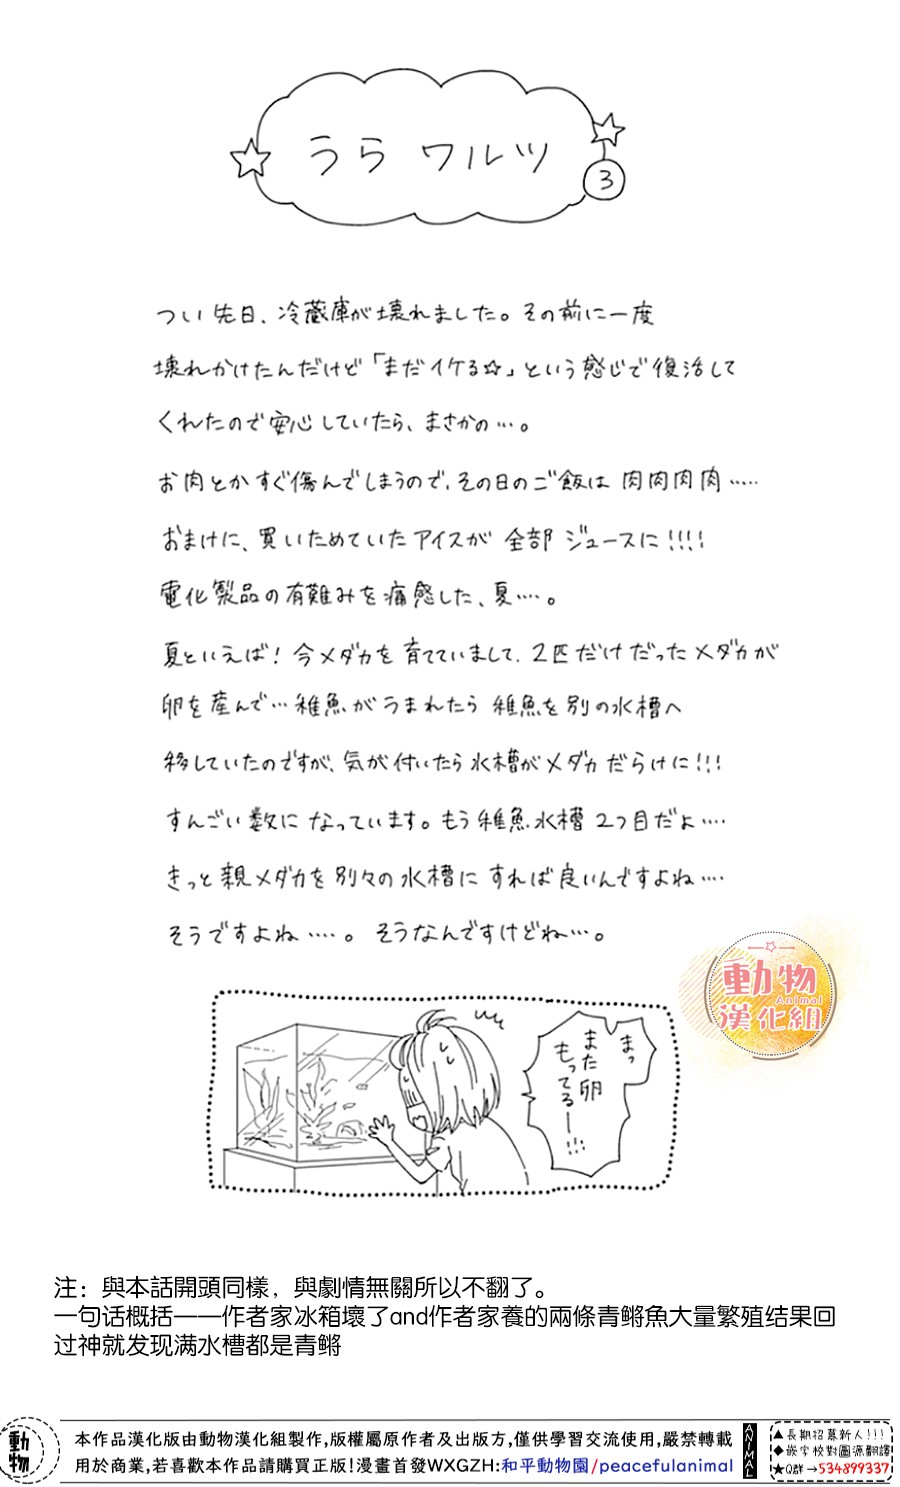 うら ワルツ
3
つい先日、冷蔵庫が壊れました。その前に一度
壊れかけたんだけど「まだイケる☆」という感じで復活して
くれたので安心していたら、まさかの…。
お肉とかすぐ傷んでしまうので、その日のご飯は 肉肉肉肉……
おまけに、買いためていたアイスが 全部 ジュースに!!!!
電化製品の有難みを痛感した、夏‥‥。
夏といえば! 今メダカを育てていまして、2匹だけだったメダカが
卵を産んで…稚魚がうまれたら 稚魚を別の水槽へ
移していたのですが、気が付いたら水槽がメダカだらけに!!!
すんごい数に なっています。もう稚魚水槽2つ目だよ‥‥
きっと親メダカを別々の水槽に すれば良いんですよね‥‥
そうですよね‥‥。 そうなんですけどね…。
まっ
また卵
もってるー!!!
動物
Animal
漢化組
注：與本話開頭同樣，與劇情無關所以不翻了。
一句话概括——作者家冰箱壞了and作者家養的兩條青鳉魚大量繁殖结果回
过神就发现满水槽都是青鳉
動物
本作品漢化版由動物漢化組製作,版權屬原作者及出版方,僅供學習交流使用,嚴禁轉載
用於商業,若喜歡本作品請購買正版!漫畫首發WXGZH:和平動物園/peacefulanimal
ANIMAL
▲長期招募新人!!!
◆嵌字校對圖源翻譯
★Q群→534899337